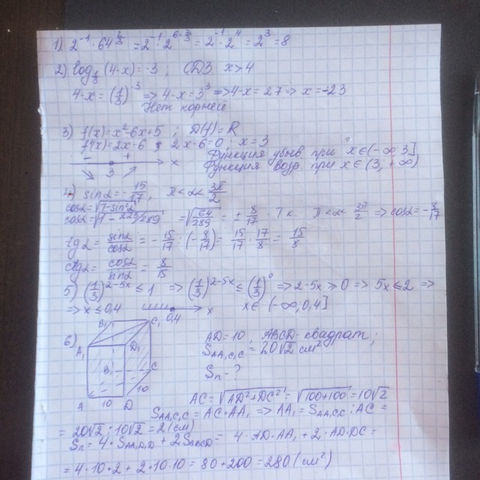 1) 2⁻¹ · 64^(2/3) = 2⁻¹ · 2^(6·2/3) = 2⁻¹ · 2⁴ = 2³ = 8
2) log_(1/3) (4-x) = -3, ОДЗ x > 4
4-x = (1/3)⁻³ => 4-x = 3³ => 4-x = 27 => x = -23
Нет корней
3) f(x) = x²-6x+5 ; D(f) = R
f'(x) = 2x-6 ; 2x-6=0, x = 3
- + x
3
Функция убыв. при x∈(-∞ 3]
Функция возр. при x∈(3, +∞)
4) sin α = -15/17, π<α<3π/2
cos α = √(1-sin²α)
cos α = √(1-225/289) = √(64/289) = ± 8/17 Т к π<α<3π/2 => cos α = -8/17
tg α = sin α/cos α = -15/17 : (-8/17) = 15/17 · 17/8 = 15/8
ctg α = cos α/sin α = 8/15
5) (1/3)^(2-5x) ≤ 1 => (1/3)^(2-5x) ≤ (1/3)⁰ => 2-5x ≥ 0 => 5x ≤ 2 =>
=> x ≤ 0,4 0,4 x x∈(-∞, 0,4]
6) B₁ C₁
A₁ D₁
B C
A 10 D 10
AD = 10, ABCD - квадрат;
S_AA₁C₁C = 20√2 см²
Sп - ?
AC = √(AD²+DC²) = √(100+100) = 10√2
S_AA₁C₁C = AC · AA₁ => AA₁ = S_AA₁C₁C : AC =
= 20√2 : 10√2 = 2 (см)
Sп = 4 · S_AA₁D₁D + 2 S_ABCD = 4 · AD · AA₁ + 2 · AD · DC =
= 4 · 10 · 2 + 2 · 10 · 10 = 80 + 200 = 280 (см²)